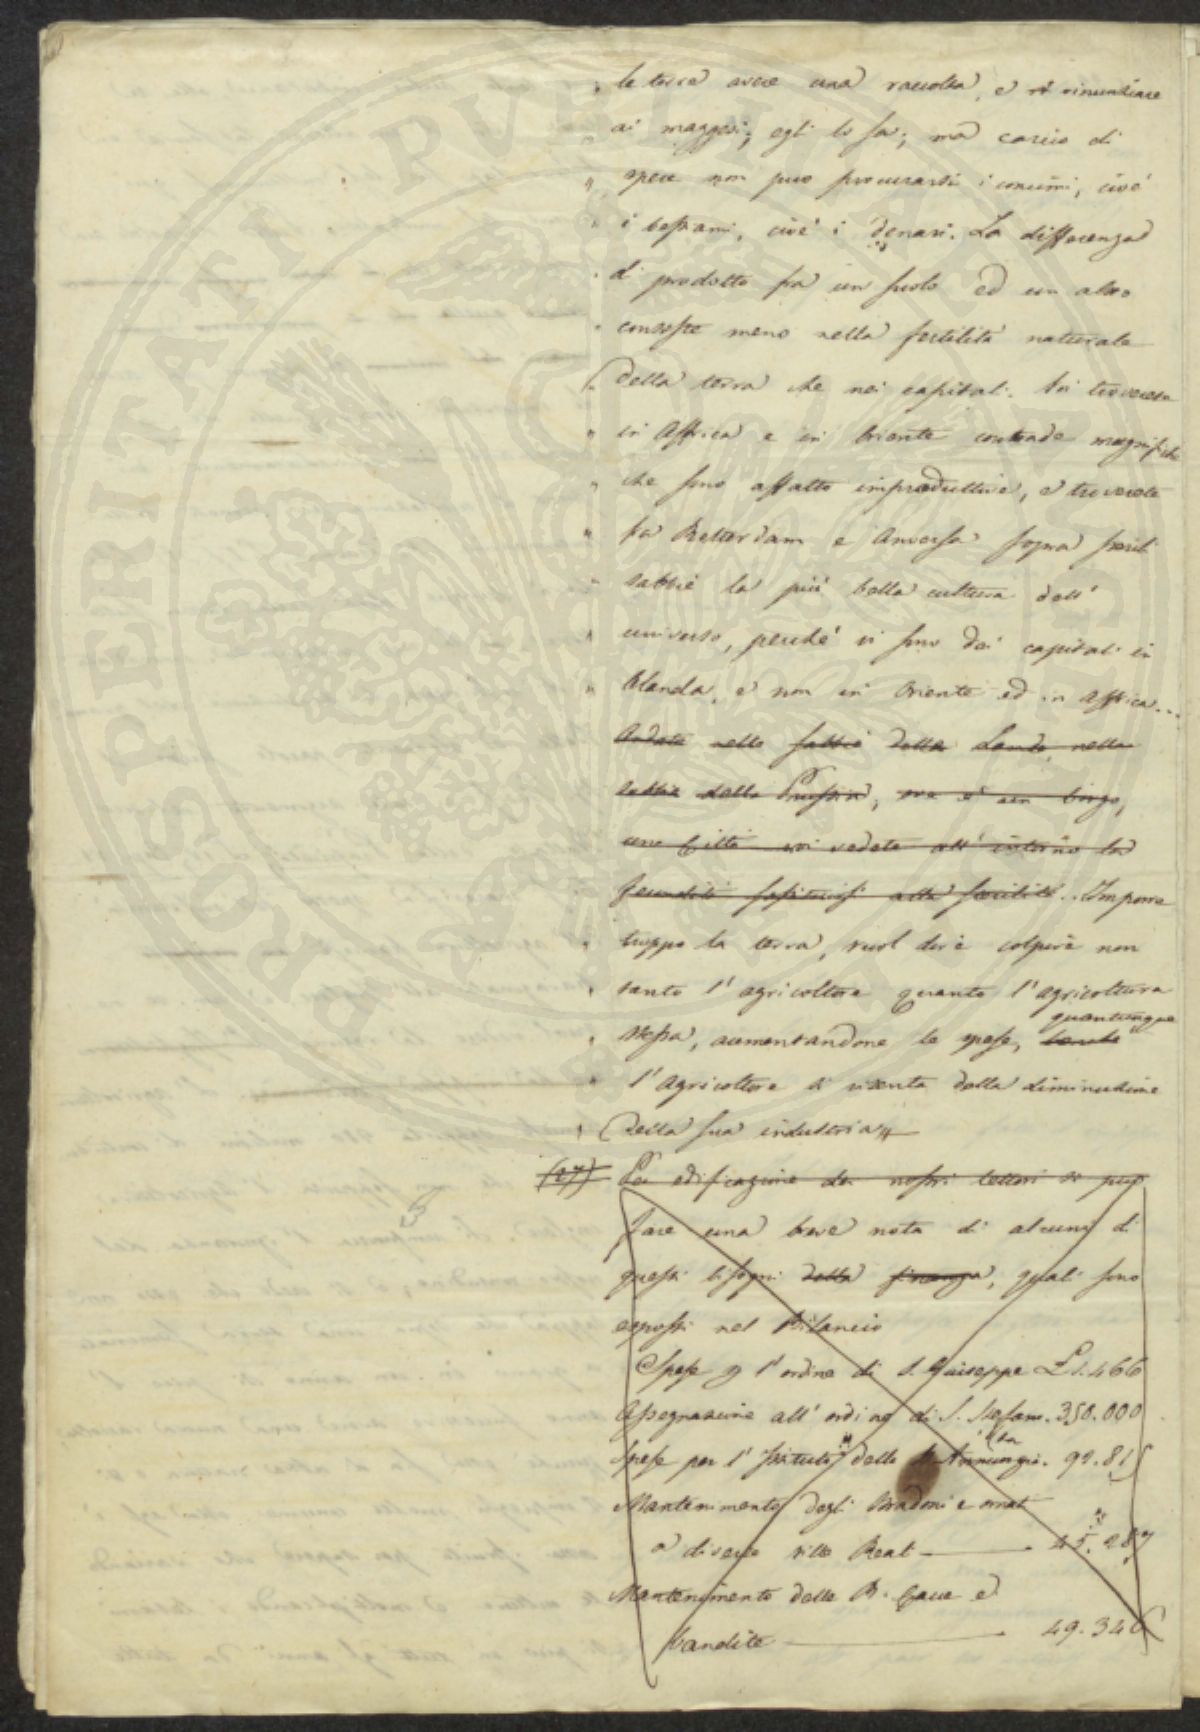 " le terre avere una raccolta, e rinunziare
" ai maggesi; egli lo sa; ma carico di
" spese non può procurarsi i concimi, cioè
" i bestiami, cioè i denari. La differenza
" di prodotto fra un suolo ed un altro
" consiste meno nella fertilità naturale
" della terra che nei capitali. Voi troverete
" in Affrica e in Oriente contrade magnifiche
" che sono affatto improduttive, e troverete
" fra Rotterdam e Anversa sopra sterili
" sabbie la più bella cultura dell'
" universo, perchè vi sono dei capitali in
" Olanda, e non in Oriente ed in Affrica...
Andate nelle sabbie delle Lande, nelle
sabbie della Prussia, ove è un borgo,
una Città voi vedete all'intorno la
fecondità sostituirsi alla sterilità.. Imporre
" troppo la terra, vuol dire colpire non
" tanto l'agricoltore quanto l'agricoltura
quantunque
" stessa, aumentandone le spese,
" l'agricoltore si risenta della diminuzione
" della sua industria"
(27) Per edificazione dei nostri lettori si può
fare una breve nota di alcuni di
questi bisogni della finanza, quali sono
esposti nel Bilancio
Spese p l'ordine di S. Giuseppe £ 1.466
Assegnazione all'ordine di S. Stefano. 350.000
Spese per l'Istituto della SS. Annunzia. 92.815
ta
Mantenimento degli Stradoni e ornati
a diverse ville Reali 45.287
Mantenimento delle R. Cacce e
bandite 49.346
PROSPERITATI PUBLICAE